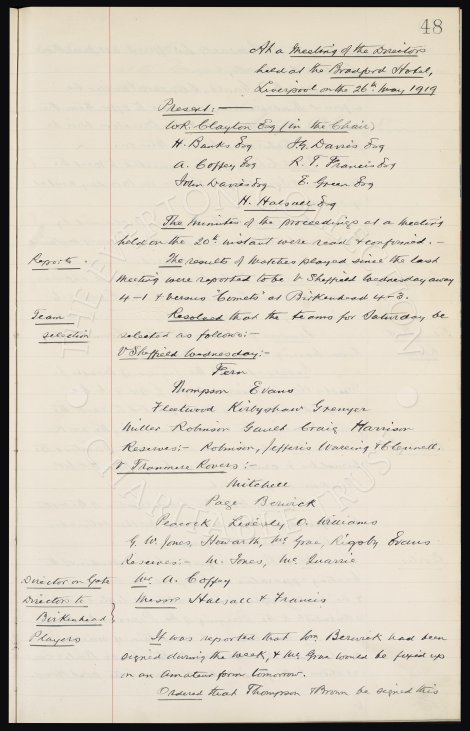 48
At a Meeting of the Directors
held at the Bradford Hotel,
Liverpool on the 26th May 1919
Present:-
W.R. Clayton Esq (in the Chair)
H. Banks Esq J.G. Davies Esq
A. Coffey Esq R.T. Francis Esq
John Davies Esq E. Green Esq
H. Halsall Esq
The minutes of the proceedings at a meeting
held on the 20th instant were read & confirmed. -
Reports. The results of matches played since the last
meeting were reported to be V Sheffield Wednesday away
4-1 & versus "Comets" at Birkenhead 4-3.
Team Resolved that the teams for Saturday be
selection selected as follows:-
V Sheffield Wednesday:-
Fern
Thompson Evans
Fleetwood Kirbyshaw Grenyer
Miller Robinson Gault Craig Harrison
Reserves:- Robinson, Jefferis Wareing & Clennell.
V Tranmere Rovers:-
Mitchell
Page Berwick
Peacock Livesley O. Williams
G. W. Jones, Howarth, McGrae, Rigsby Evans
Reserves:- W. Jones, McQuarrie
Director on Gate Mr A. Coffey
Directors to Messrs Halsall & Francis
Birkenhead
Players It was reported that Wm Berwick had been
signed during the week, & McGrae would be fixed up
on an amateur form tomorrow.
Ordered that Thompson & Brown be signed this
THE EVERTON COLLECTION
CHARITABLE TRUST